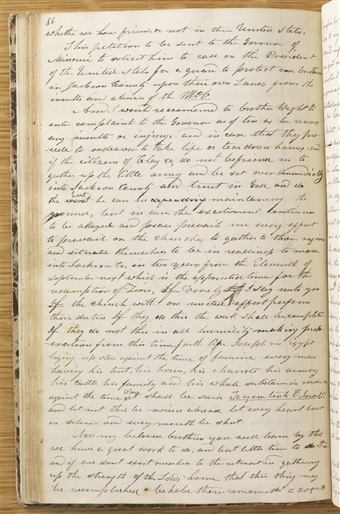 86
whether we have friends or not in these United States.
This petition to be sent to the Governor of
Missouri to solicit him to call on the President
of the United States for a guard to protect our brethren
in Jackson County upon their own Lands from the
insults and abuse of the MOB.
And I would recommend to brother Wight to
enter complaint to the Governor as often as he receives
any insults or injury, and in case that they pro-
ceed to endeavor to take life or tear down houses, and
if the citizens of Clay co. do not befriend us to
gather up the little army and be set over immediately
into Jackson County and trust in God and do
the best he can in maintaining the
ground, but in case the excitement continues
to be allayed and peace prevails use every effort
to prevail on the churches to gather to those regions
and situate themselves to be in readiness to move
into Jackson Co. in two years from the Eleventh of
September next which is the appointed time for the
redemption of Zion, If Verily I say unto you
If the church with one united effort perform
their duties If they do this the work shall be complete
If they do not this in all humility making prep-
aration from this time forth like Joseph in Egypt
laying up store against the time of famine every man
having his tent, his horses, his chariots his armory
his cattle his family and his whole substance in readiness
against the time when it shall be said To your tents O Israel!!
and let not this be noised abroad let every heart beat
in silence and every mouth be shut
Now my beloved brethren you will learn by this
we have a great work to do, and but little time to do it in
and if we dont exert ourselves to the utmost in gathering
up the strength of the Lord's house that this thing may
be accomplished behold there remaineth a scorge